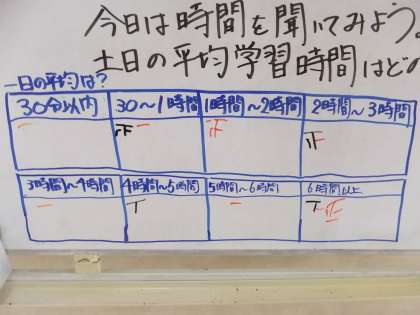 今日は時間を聞いてみよう。
土日の平均学習時間はど
一日の平均は?
30分以内 30〜1時間 1時間〜2時間 2時間〜3時間
一 正一 正 正
3時間〜4時間 4時間〜5時間 5時間〜6時間 6時間以上
一 T 一 T正